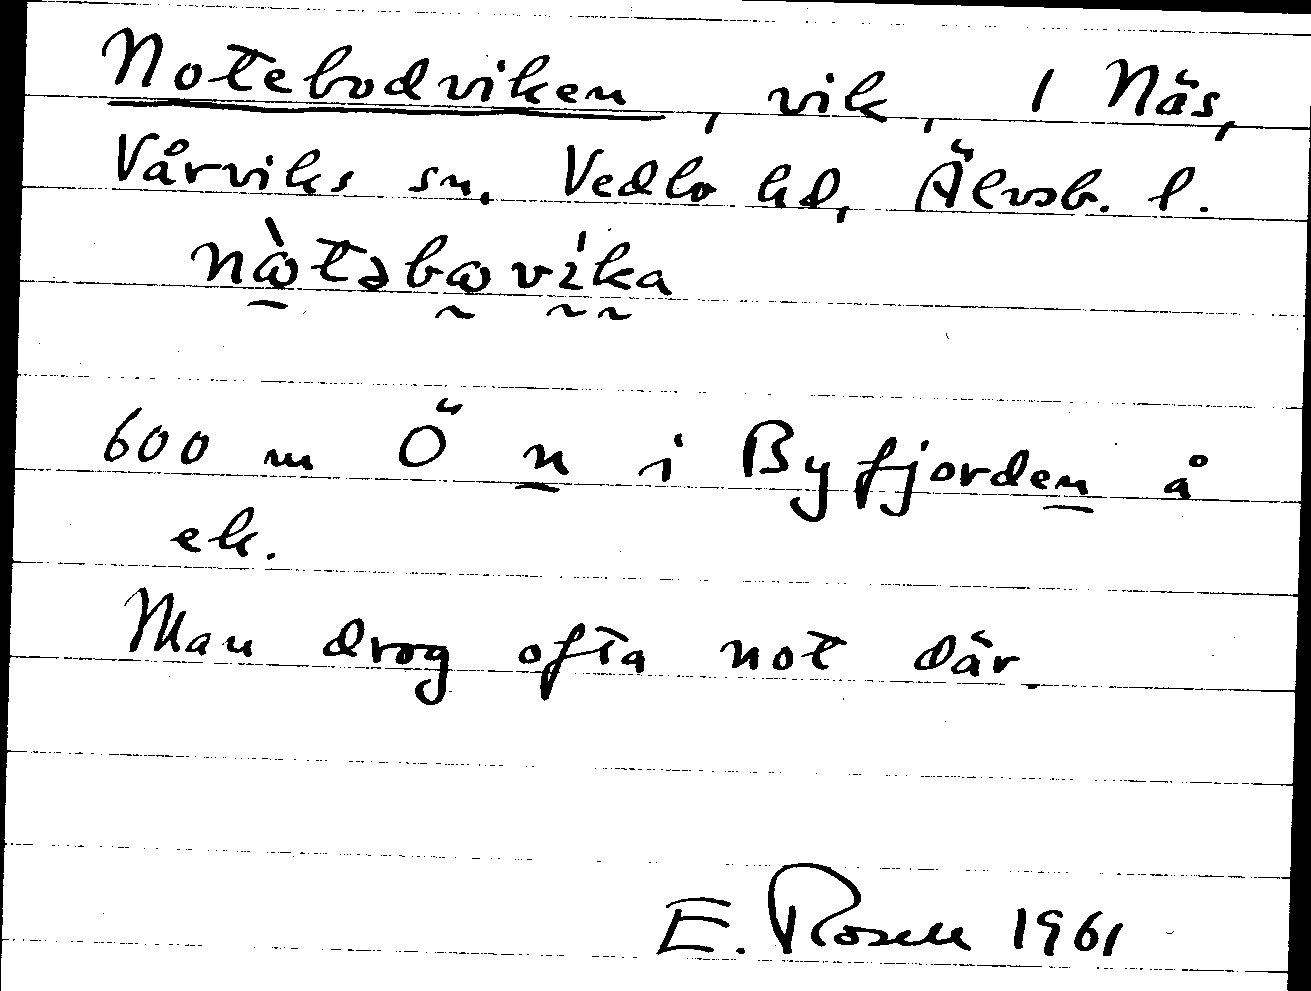 Notebodviken, vik, 1 Näs,
Vårviks sn. Vedbo hd, Älvsb. l.
nὼtəbωvi̍ka
600 m Ö n i Byfjorden å
ek.
Man drog ofta not där.
E. Rosell 1961